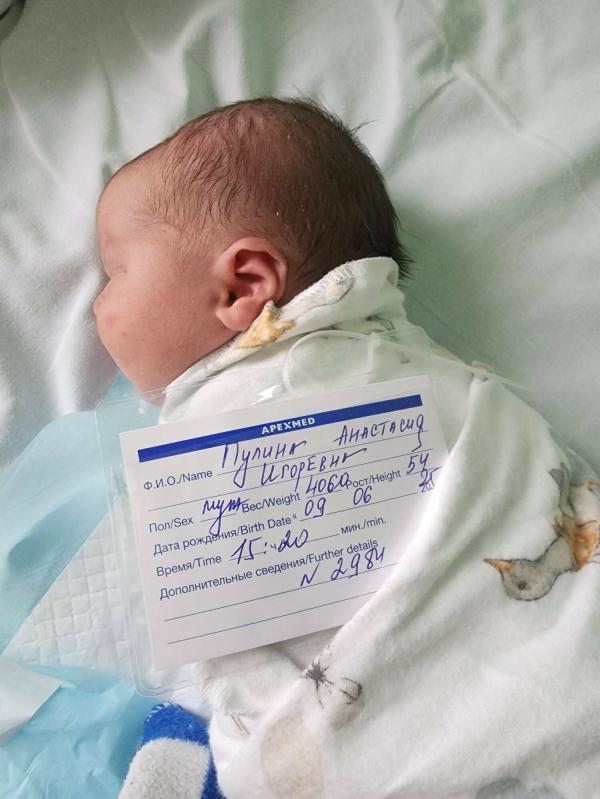 APEXMED
Ф.И.О./Name Пулина Анастасия
Игоревна
Пол/Sex муж Вес/Weight 4060 Рост/Height 54
Дата рождения/Birth Date " 09 06 2025
Время/Time 15:ч20 мин./min.
Дополнительные сведения/Further details
N 2984